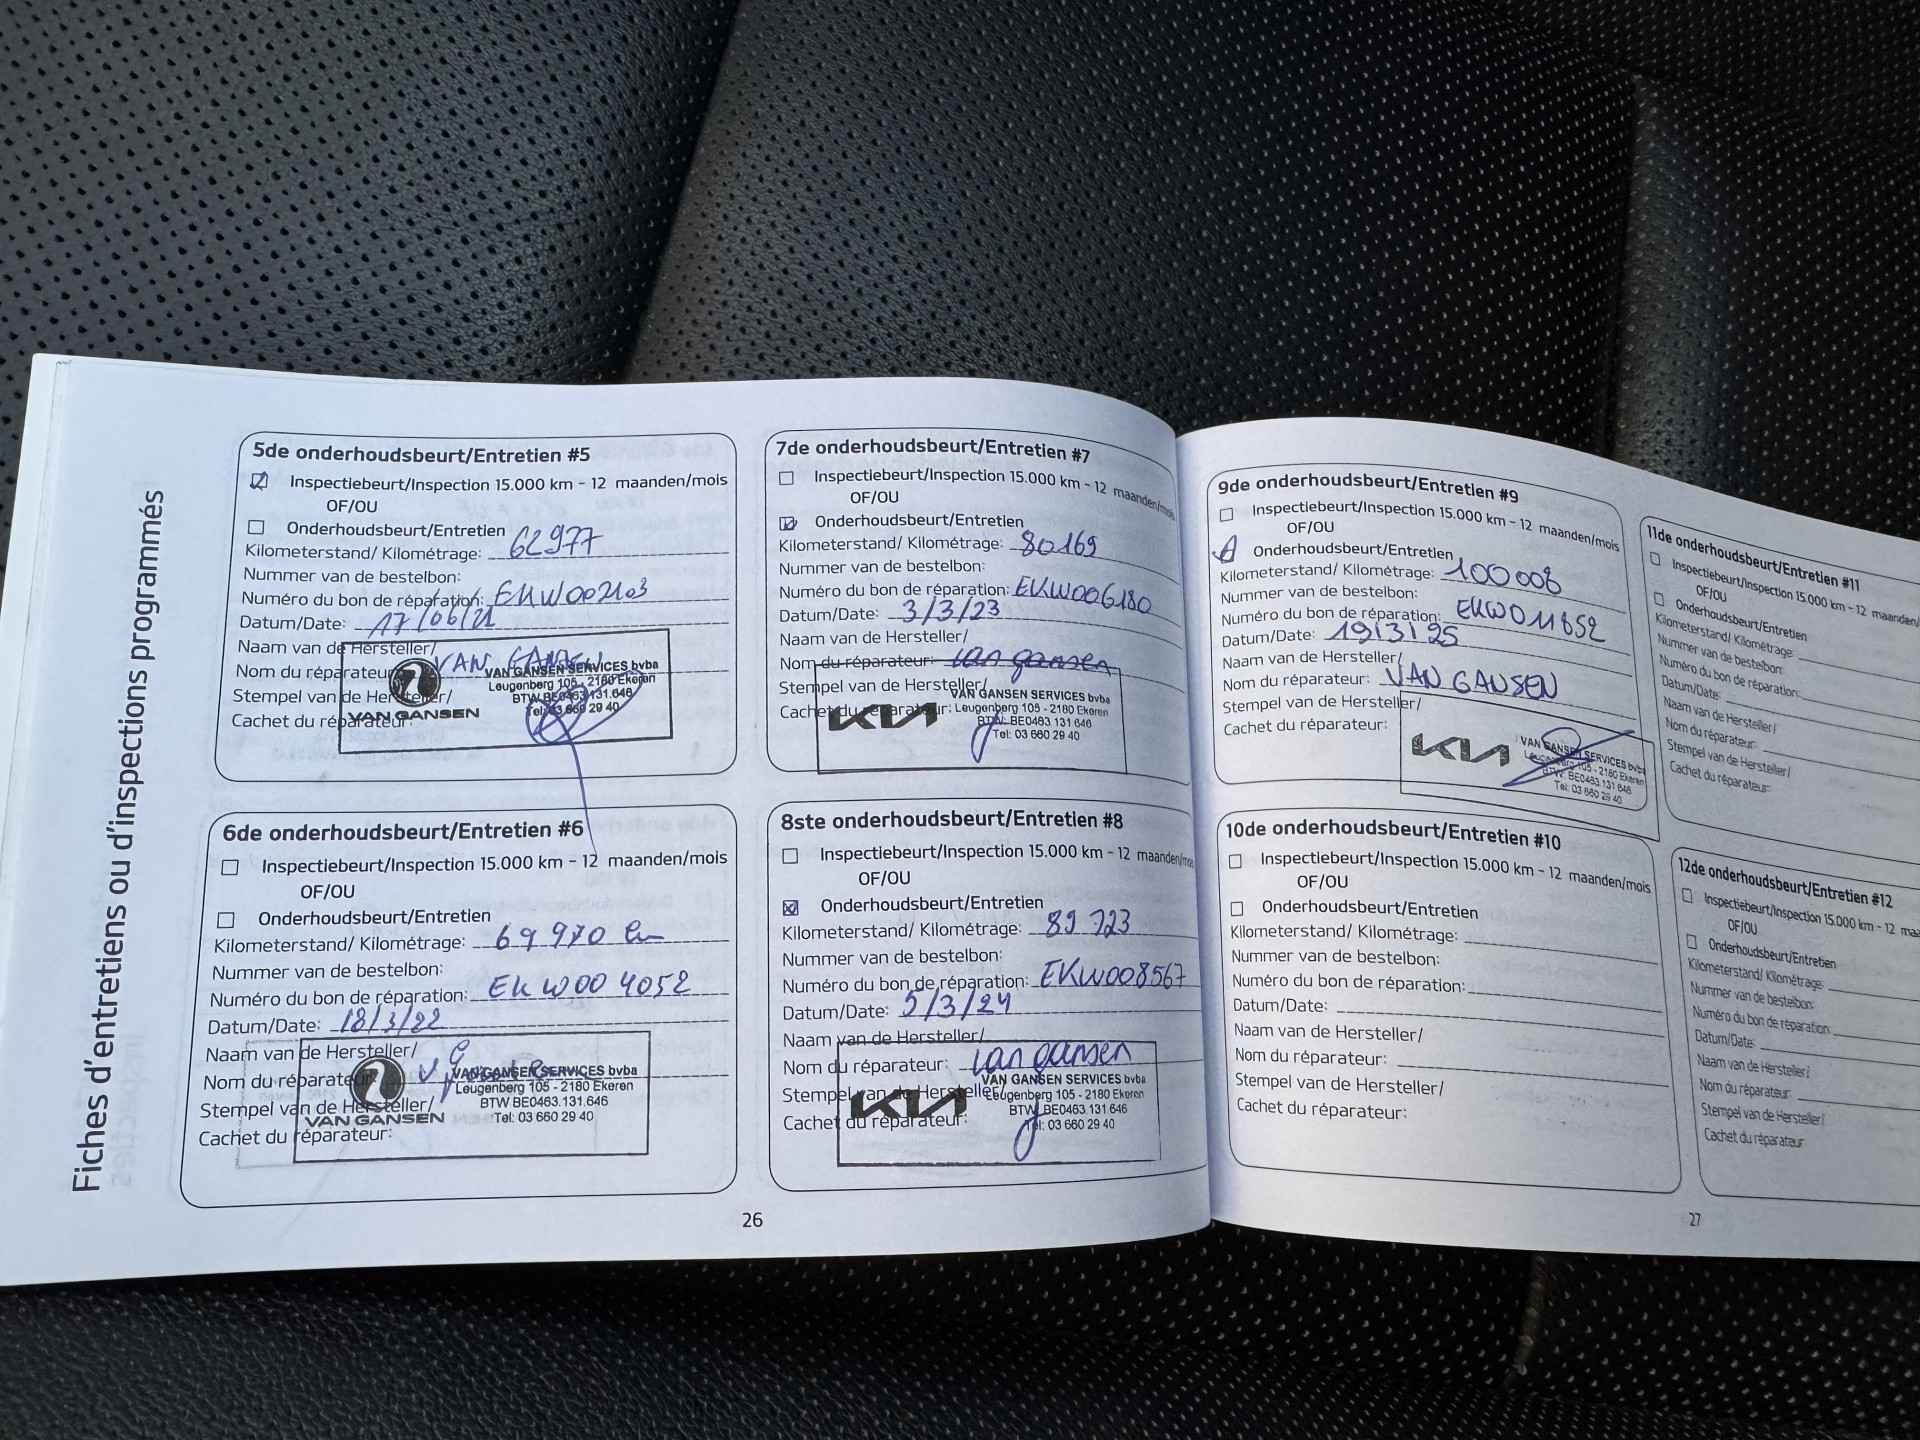 Fiches d'entretiens ou d'inspections programmés
5de onderhoudsbeurt/Entretien #5
Inspectiebeurt/Inspection 15.000 km - 12 maanden/mois
OF/OU
Onderhoudsbeurt/Entretien
Kilometerstand/ Kilométrage: 62977
Nummer van de bestelbon:
Numéro du bon de réparation: EKW002103
Datum/Date: 17/06/21
Naam van de Hersteller/
Nom du réparateur: VAN GANSEN
Stempel van de Hersteller/
Cachet du réparateur:
VAN GANSEN
VAN GANSEN SERVICES bvba
Leugenberg 105 - 2180 Ekeren
BTW BE0463.131.646
Tel: 03 660 29 40
6de onderhoudsbeurt/Entretien #6
Inspectiebeurt/Inspection 15.000 km - 12 maanden/mois
OF/OU
Onderhoudsbeurt/Entretien
Kilometerstand/ Kilométrage: 69 970 km
Nummer van de bestelbon:
Numéro du bon de réparation: EKW004052
Datum/Date: 18/3/22
Naam van de Hersteller/
Nom du réparateur:
Stempel van de Hersteller/
Cachet du réparateur:
VAN GANSEN
VAN GANSEN SERVICES bvba
Leugenberg 105 - 2180 Ekeren
BTW BE0463.131.646
Tel: 03 660 29 40
7de onderhoudsbeurt/Entretien #7
Inspectiebeurt/Inspection 15.000 km - 12 maanden/mois
OF/OU
Onderhoudsbeurt/Entretien
Kilometerstand/ Kilométrage: 80169
Nummer van de bestelbon:
Numéro du bon de réparation: EKW006180
Datum/Date: 3/3/23
Naam van de Hersteller/
Nom du réparateur: van gansen
Stempel van de Hersteller/
Cachet du réparateur:
KIA
VAN GANSEN SERVICES bvba
Leugenberg 105 - 2180 Ekeren
BTW: BE0463 131 646
Tel: 03 660 29 40
8ste onderhoudsbeurt/Entretien #8
Inspectiebeurt/Inspection 15.000 km - 12 maanden/mois
OF/OU
Onderhoudsbeurt/Entretien
Kilometerstand/ Kilométrage: 89 723
Nummer van de bestelbon:
Numéro du bon de réparation: EKW008567
Datum/Date: 5/3/24
Naam van de Hersteller/
Nom du réparateur: van gansen
Stempel van de Hersteller/
Cachet du réparateur:
KIA
VAN GANSEN SERVICES bvba
Leugenberg 105 - 2180 Ekeren
BTW: BE0463 131 646
Tel: 03 660 29 40
26
9de onderhoudsbeurt/Entretien #9
Inspectiebeurt/Inspection 15.000 km - 12 maanden/mois
OF/OU
Onderhoudsbeurt/Entretien
Kilometerstand/ Kilométrage: 100 006
Nummer van de bestelbon:
Numéro du bon de réparation: EKW011652
Datum/Date: 19/3/25
Naam van de Hersteller/
Nom du réparateur: VAN GANSEN
Stempel van de Hersteller/
Cachet du réparateur:
KIA
VAN GANSEN SERVICES bvba
Leugenberg 105 - 2180 Ekeren
BTW: BE0463 131 646
Tel: 03 660 29 40
10de onderhoudsbeurt/Entretien #10
Inspectiebeurt/Inspection 15.000 km - 12 maanden/mois
OF/OU
Onderhoudsbeurt/Entretien
Kilometerstand/ Kilométrage:
Nummer van de bestelbon:
Numéro du bon de réparation:
Datum/Date:
Naam van de Hersteller/
Nom du réparateur:
Stempel van de Hersteller/
Cachet du réparateur:
11de onderhoudsbeurt/Entretien #11
Inspectiebeurt/Inspection 15.000 km - 12 maanden/
OF/OU
Onderhoudsbeurt/Entretien
Kilometerstand/ Kilométrage:
Nummer van de bestelbon:
Numéro du bon de réparation:
Datum/Date:
Naam van de Hersteller/
Nom du réparateur:
Stempel van de Hersteller/
Cachet du réparateur:
12de onderhoudsbeurt/Entretien #12
Inspectiebeurt/Inspection 15.000 km - 12 maa
OF/OU
Onderhoudsbeurt/Entretien
Kilometerstand/ Kilométrage:
Nummer van de bestelbon:
Numéro du bon de réparation:
Datum/Date:
Naam van de Hersteller/
Nom du réparateur:
Stempel van de Hersteller/
Cachet du réparateur
27